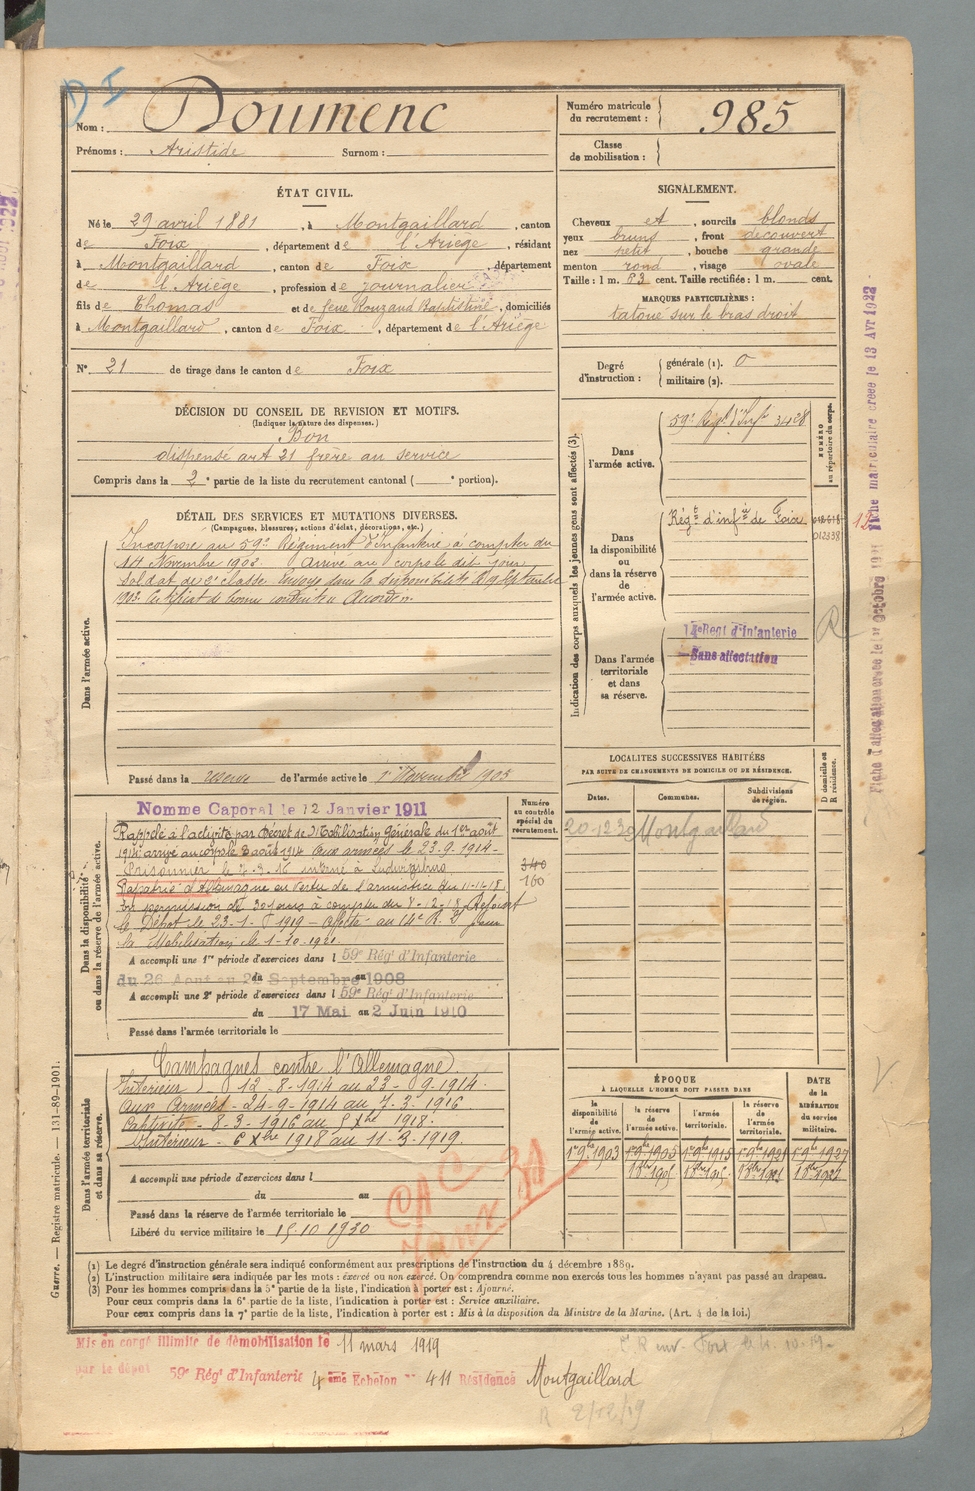 D I
Nom : Doumenc
Prénoms : Aristide Surnom :
Numéro matricule du recrutement : 985
Classe de mobilisation :
ÉTAT CIVIL.
Né le 29 avril 1881, à Montgaillard, canton
de Foix, département de l'Ariège, résidant
à Montgaillard, canton de Foix, département
de l'Ariège, profession de journalier
fils de Thomas et de feue Rouzaud Baptistine, domiciliés
à Montgaillard, canton de Foix, département de l'Ariège
N° 21 de tirage dans le canton de Foix
SIGNALEMENT.
Cheveux et, sourcils blonds
yeux bruns, front découvert
nez petit, bouche grande
menton rond, visage ovale
Taille : 1 m. 63 cent. Taille rectifiée : 1 m. cent.
MARQUES PARTICULIÈRES :
tatoué sur le bras droit
Degré d'instruction : générale (1). 0
militaire (2).
DÉCISION DU CONSEIL DE REVISION ET MOTIFS.
(Indiquer la nature des dispenses.)
Bon
dispensé art 21 frère au service
Compris dans la 2e partie de la liste du recrutement cantonal ( e portion).
DÉTAIL DES SERVICES ET MUTATIONS DIVERSES.
(Campagnes, blessures, actions d'éclat, décorations, etc.)
Dans l'armée active.
Incorporé au 59e Régiment d'Infanterie à compter du
14 Novembre 1902. Arrivé au corps le dit jour
soldat de 2e classe. Envoyé dans la disponibilité le 19 Septembre
1903. Certificat de bonne conduite Accordé.
Passé dans la réserve de l'armée active le 1er Novembre 1905
Indication des corps auxquels les jeunes gens sont affectés (3).
NUMÉRO au répertoire du corps.
Dans l'armée active.
59e Régt d'Inf 3428
Dans la disponibilité ou dans la réserve de l'armée active.
Régt d'infie de Foix
012338
Dans l'armée territoriale et dans sa réserve.
14e Régt d'Infanterie
Sans affectation
R
Fiche matriculaire créée le 13 Avr 1922
LOCALITÉS SUCCESSIVES HABITÉES
PAR SUITE DE CHANGEMENTS DE DOMICILE OU DE RÉSIDENCE.
Dates. Communes. Subdivisions de région. D domicile ou R résidence.
Montgaillard
Dans la disponibilité ou dans la réserve de l'armée active.
Numéro au contrôle spécial du recrutement.
340
160
Nommé Caporal le 12 Janvier 1911
Rappelé à l'activité par Décret de Mobilisation Générale du 1er août
1914 arrivé au corps le 3 août 1914 Aux armées le 23.9.1914-
Prisonnier le 7.3.16 interné à Ludwigsburg
Rapatrié d'Allemagne en vertu de l'armistice du 11-11-18
En permission de 30 jours à compter du 8-12-18 Rejoint
le Dépôt le 23-1-1919 - Affecté au 14e R. I pour
la Mobilisation le 1-10-1921.
A accompli une 1re période d'exercices dans l 59e Régt d'Infanterie
du 26 Août au Septembre 1908
A accompli une 2e période d'exercices dans l 59e Régt d'Infanterie
du 17 Mai au 2 Juin 1910
Passé dans l'armée territoriale le
Dans l'armée territoriale et dans sa réserve.
Campagnes contre l'Allemagne
Intérieur - 12-8-1914 au 23-9-1914.
Aux Armées - 24-9-1914 au 7-3-1916
Captivité - 8-3-1916 au 5 Xbre 1918.
Intérieur - 6 Xbre 1918 au 11-3-1919.
A accompli une période d'exercices dans l
du au
Passé dans la réserve de l'armée territoriale le
Libéré du service militaire le 15.10 1930
ÉPOQUE
À LAQUELLE L'HOMME DOIT PASSER DANS
la disponibilité de l'armée active. la réserve de l'armée active. l'armée territoriale. la réserve de l'armée territoriale.
DATE de la LIBÉRATION du service militaire.
1er 9bre 1903 1er 9bre 1905 1er 9bre 1915 1er 9bre 1921 1er 9bre 1927
(1) Le degré d'instruction générale sera indiqué conformément aux prescriptions de l'instruction du 4 décembre 1889.
(2) L'instruction militaire sera indiquée par les mots : exercé ou non exercé. On comprendra comme non exercés tous les hommes n'ayant pas passé au drapeau.
(3) Pour les hommes compris dans la 5e partie de la liste, l'indication à porter est : Ajourné.
Pour ceux compris dans la 6e partie de la liste, l'indication à porter est : Service auxiliaire.
Pour ceux compris dans la 7e partie de la liste, l'indication à porter est : Mis à la disposition du Ministre de la Marine. (Art. 4 de la loi.)
Guerre. — Registre matricule. — 131-89-1901.
Mis en congé illimité de démobilisation le 11 mars 1919
par le dépôt 59e Régt d'Infanterie 4eme Echelon N° 411 Résidence Montgaillard
R 2/12/19